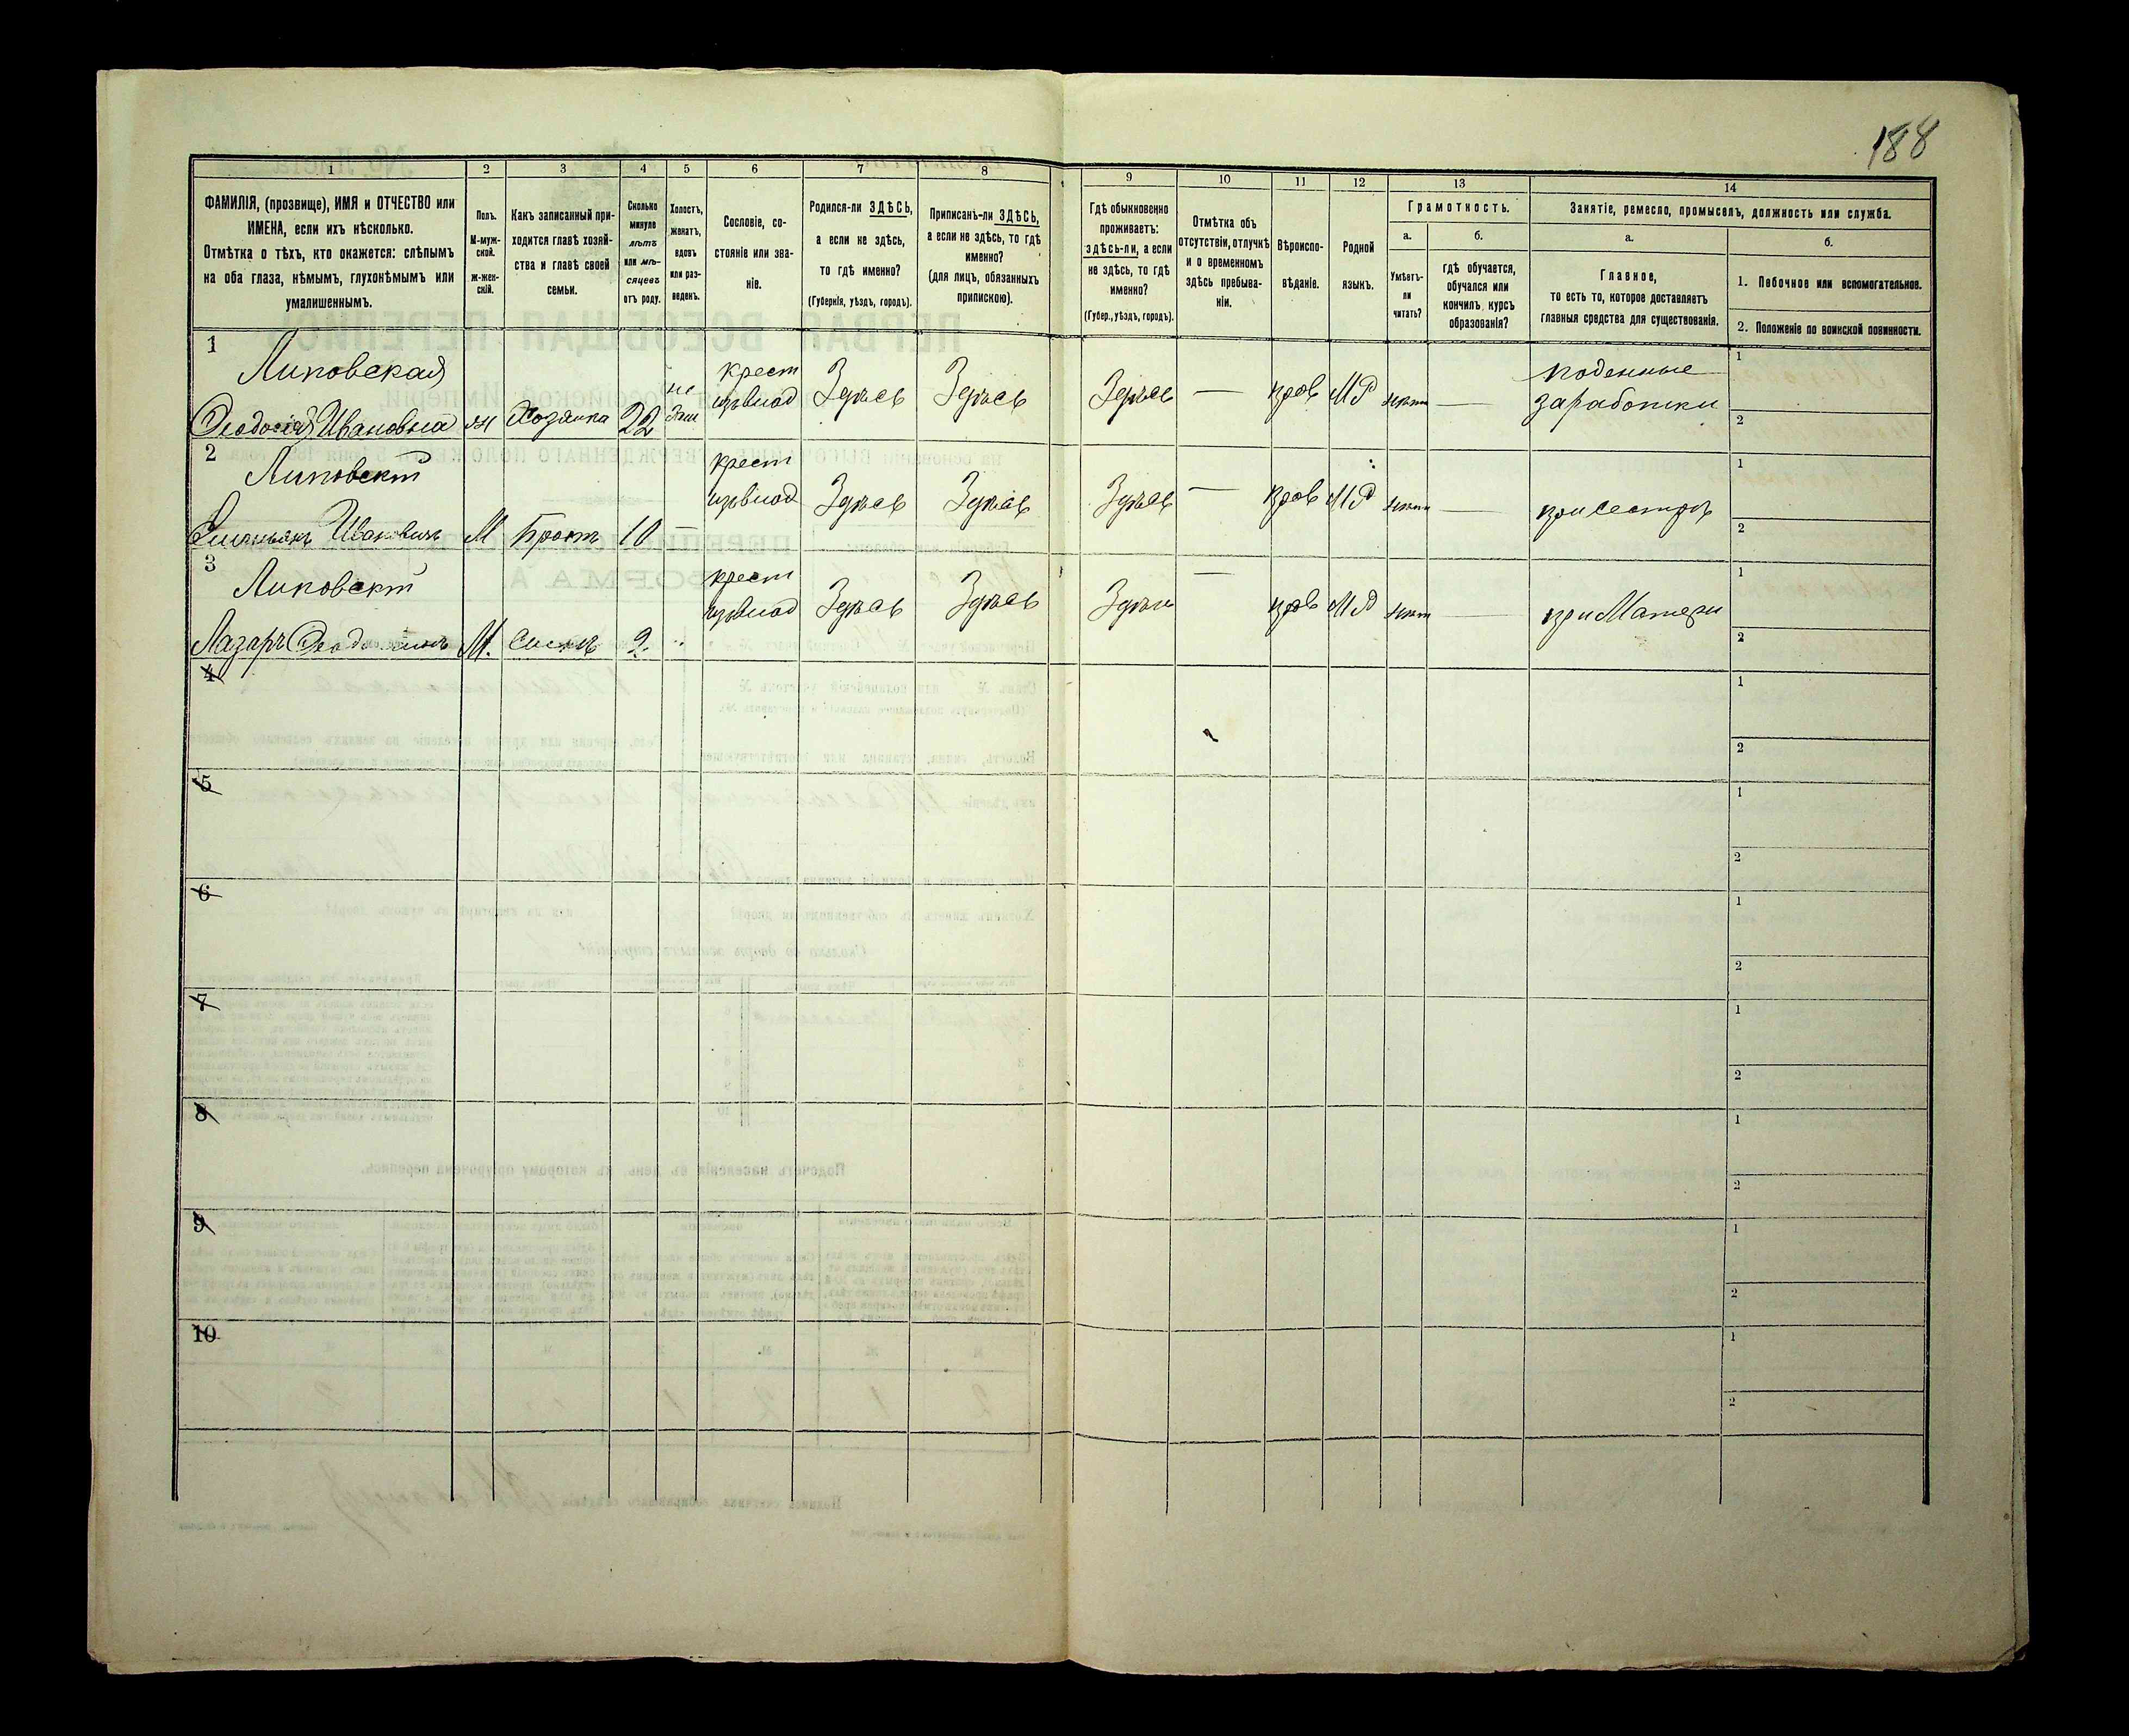 188
1
2
3
4
5
6
7
8
9
10
11
12
13
14
ФАМИЛІЯ, (прозвище), ИМЯ и ОТЧЕСТВО или
ИМЕНА, если ихъ нѣсколько.
Отмѣтка о тѣхъ, кто окажется: слѣпымъ
на оба глаза, нѣмымъ, глухонѣмымъ или
умалишеннымъ.
Полъ.
М-муж-
ской.
Ж-жен-
скій.
Какъ записанный при-
ходится главѣ хозяй-
ства и главѣ своей
семьи.
Сколько
минуло
лѣтъ
или мѣ-
сяцевъ
отъ роду.
Холостъ,
женатъ,
вдовъ
или раз-
веденъ.
Сословіе, со-
стояніе или зва-
ніе.
Родился-ли ЗДѢСЬ,
а если не здѣсь,
то гдѣ именно?
(Губернія, уѣздъ, городъ).
Приписанъ-ли ЗДѢСЬ,
а если не здѣсь, то гдѣ
именно?
(для лицъ, обязанныхъ
припискою).
Гдѣ обыкновенно
проживаетъ:
здѣсь-ли, а если
не здѣсь, то гдѣ
именно?
(Губер., уѣздъ, городъ).
Отмѣтка объ
отсутствіи, отлучкѣ
и о временномъ
здѣсь пребыва-
ніи.
Вѣроиспо-
вѣданіе.
Родной
языкъ.
Грамотность.
а.
Умѣетъ-
ли
читать?
б.
гдѣ обучается,
обучался или
кончилъ курсъ
образованія?
Занятіе, ремесло, промыселъ, должность или служба.
а.
Главное,
то есть то, которое доставляетъ
главныя средства для существованія.
б.
1. Побочное или вспомогательное.
2. Положеніе по воинской повинности.
1
Липовская
Феодосія Ивановна
Ж
Хозяйка
22
не
Зам
крест
Здѣсь
Здѣсь
Здѣсь
—
прав
МР
—
поденные
заработки
1
2
2
Липовскій
Иванович
М
Братъ
10
—
крест
Здѣсь
Здѣсь
Здѣсь
—
прав
МР
—
при сестрѣ
1
2
3
Липовскій
Лазарь
М.
Сынъ
2
крест
Здѣсь
Здѣсь
Здѣсь
—
прав
МР
—
при Матери
1
2
4
1
2
5
1
2
6
1
2
7
1
2
8
1
2
9
1
2
10
1
2